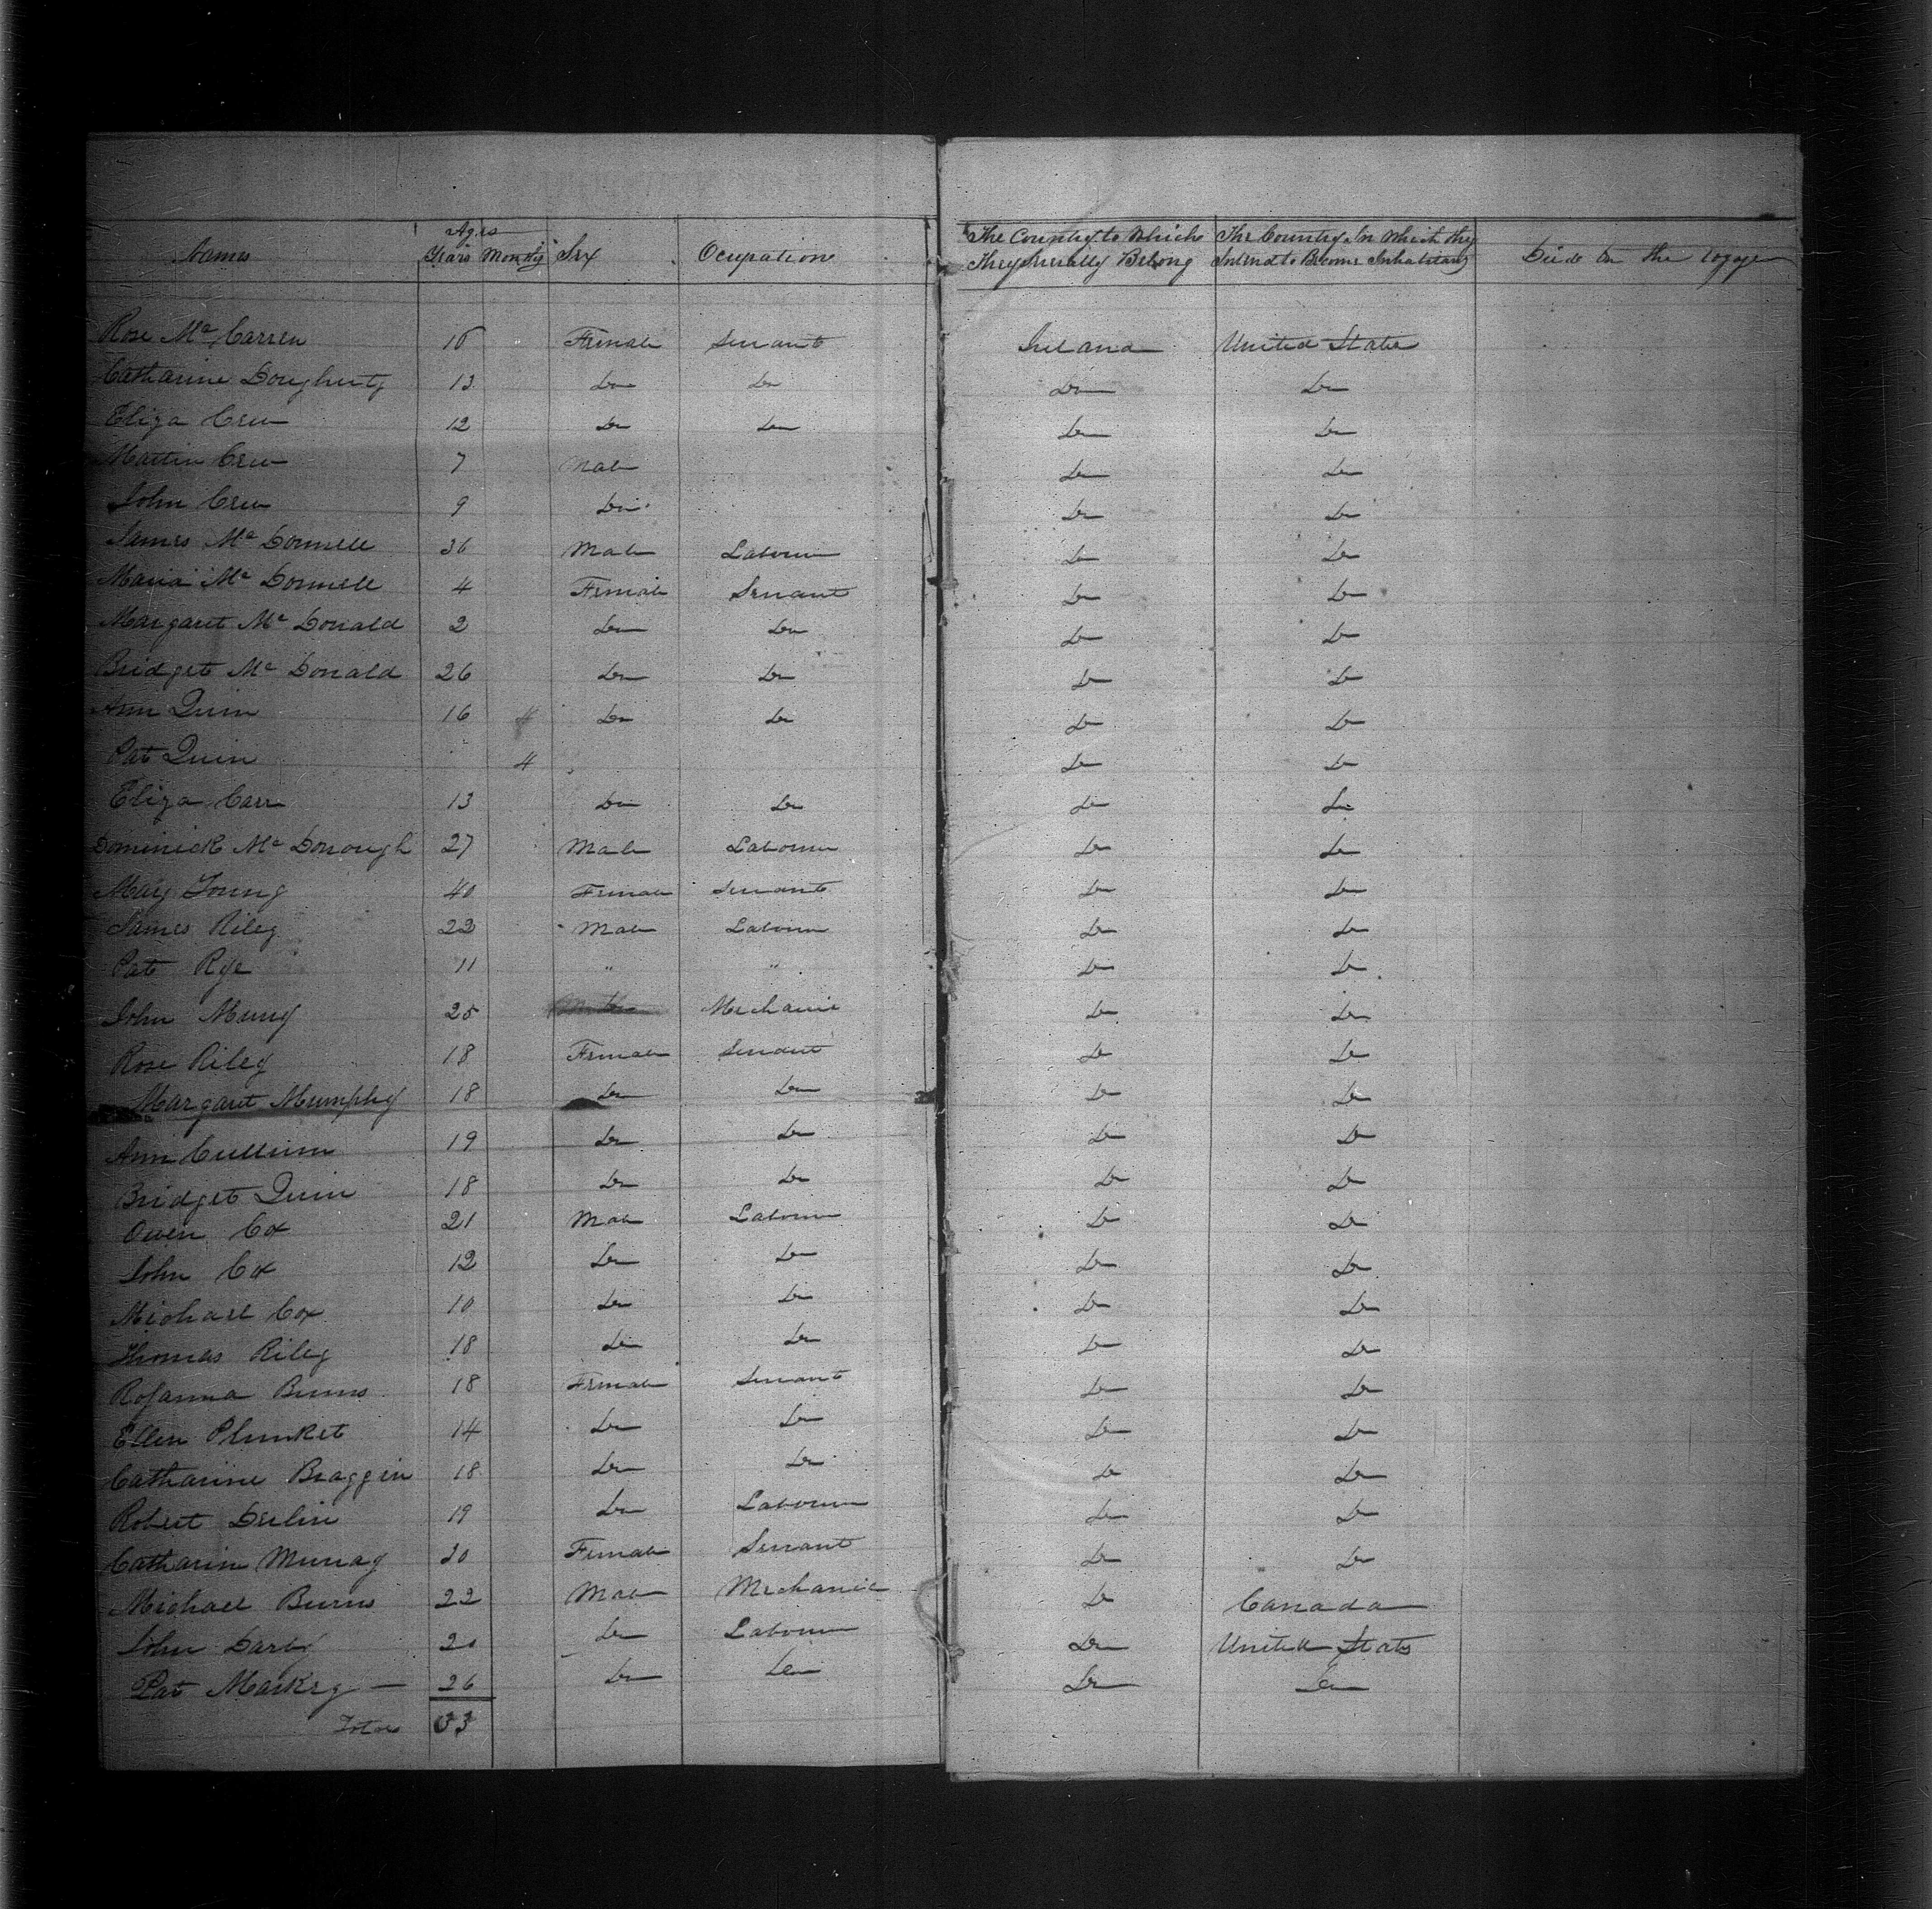 Names Ages Years Months Sex Ocupation The Country to Which They Severally Belong The Country In Which they Intend to Become Inhabitants Died on the Voyage
Rose Mc Carren 16 Female Servant Ireland United States
Catharine Dougherty 13 Do Do Do Do
Eliza Crew 12 Do Do Do Do
Martin Crew 7 Male Do Do
John Crew 9 Do Do Do
James Mc Donnell 36 Male Labourer Do Do
Maria Mc Donnell 4 Female Servant Do Do
Margaret Mc Donald 2 Do Do Do Do
Bridget Mc Donald 26 Do Do Do Do
Ann Quin 16 Do Do Do Do
Pat Quin 4 Do Do
Eliza Carr 13 Do Do Do Do
Dominick Mc Donough 27 Male Labourer Do Do
Mary Young 40 Female Servant Do Do
James Riley 22 Male Labourer Do Do
Pat Rye 11 " " Do Do
John 25 Male Mechanic Do Do
Rose Riley 18 Female Servant Do Do
Margaret Mumphy 18 Do Do Do Do
Ann Cullium 19 Do Do Do Do
Bridget Quin 18 Do Do Do Do
Owen Cox 21 Male Labourer Do Do
John Cox 12 Do Do Do Do
Michael Cox 10 Do Do Do Do
Thomas Riley 18 Do Do Do Do
Rosanna Burns 18 Female Servant Do Do
Ellen Plunket 14 Do Do Do Do
Catharine Braggin 18 Do Do Do Do
Robert Devlin 19 Do Labourer Do Do
Catharin Murray 20 Female Servant Do Do
Michael Burns 22 Male Mechanic Do Canada
John Darby 20 Do Labourer Do United States
Pat Markey — 26 Do Do Do Do
Total 33